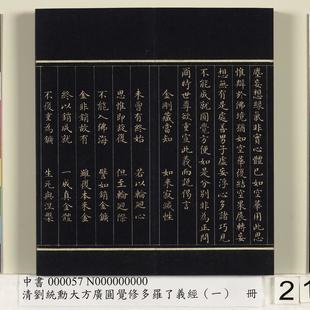 塵妄想緣氣非實心體已如空華用此思
惟辯於佛境猶如空華復結空果展轉妄
想無有是處善男子虛妄浮心多諸巧見
不能成就圓覺方便如是分別非為正問
爾時世尊欲重宣此義而說偈言
金剛藏當知 如來寂滅性
未曾有終始 若以輪迴心
思惟即旋復 但至輪迴際
不能入佛海 譬如銷金鑛
金非銷故有 雖復本來金
終以銷成就 一成真金體
不復重為鑛 生死與涅槃
中書 000057 N000000000
清劉統勳大方廣圓覺修多羅了義經(一) 冊
2